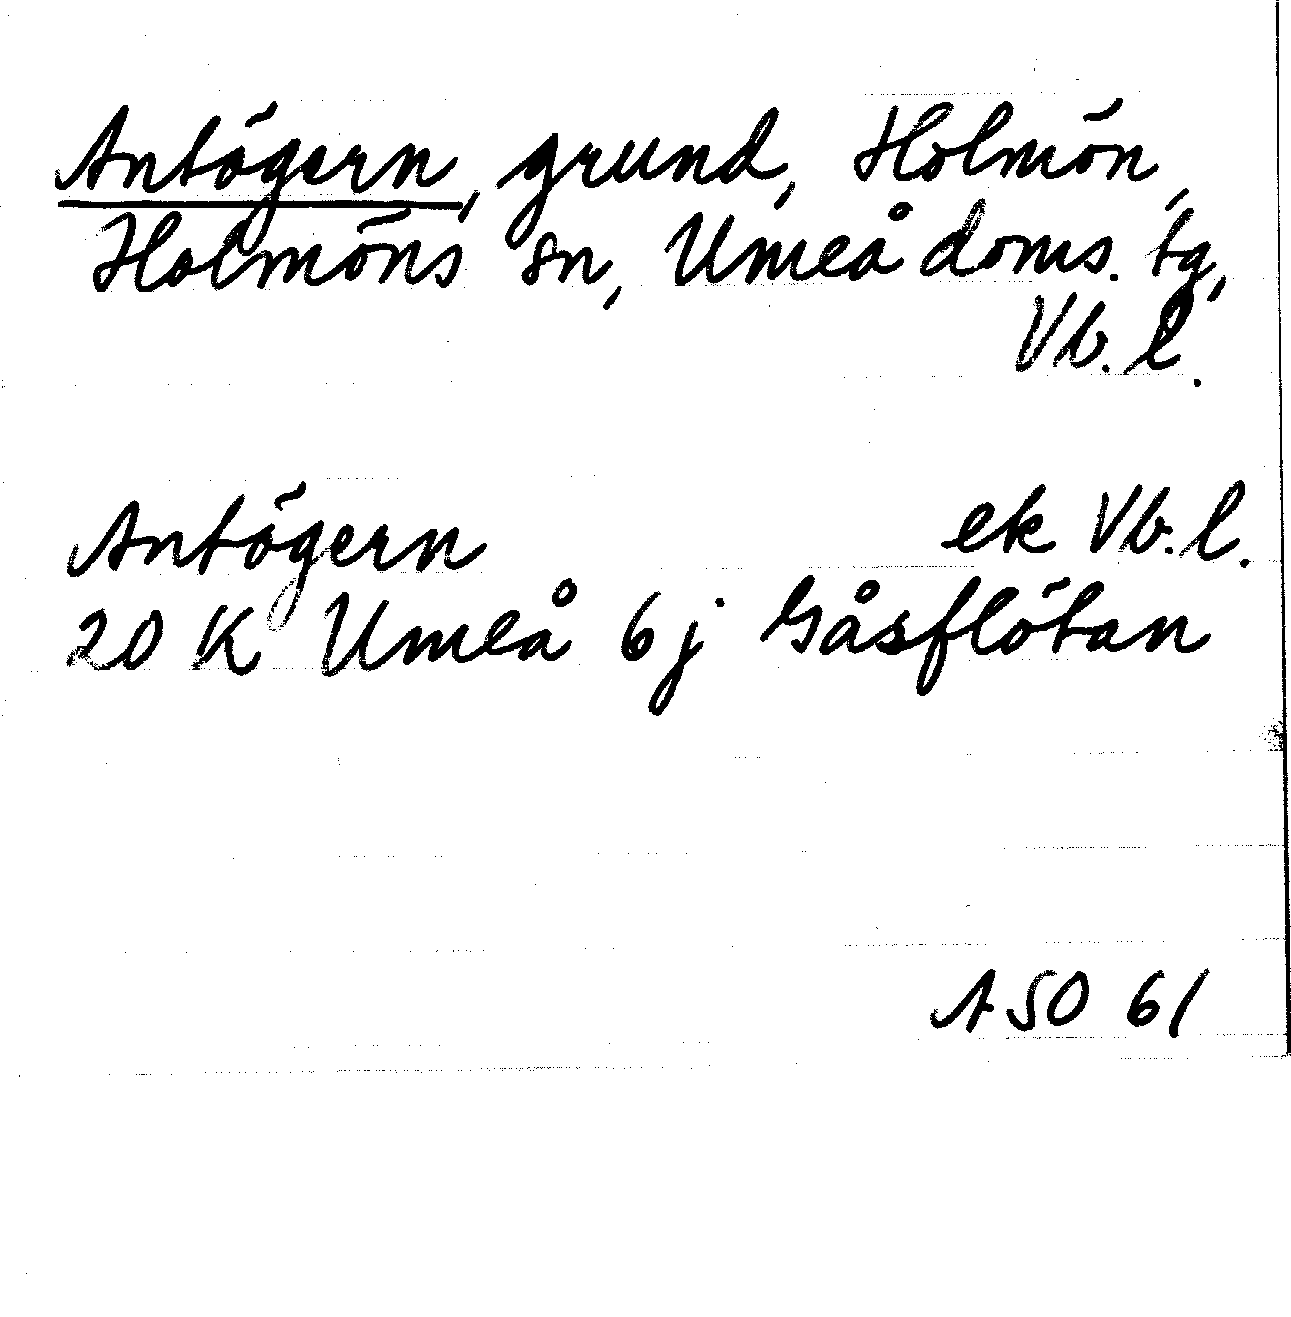 Antögern, grund, Holmön,
Holmöns sn, Umeå doms. tg,
Vb. l.
Antögern ek Vb. l.
20 K Umeå 6 j Gåsflötan
ASO 61